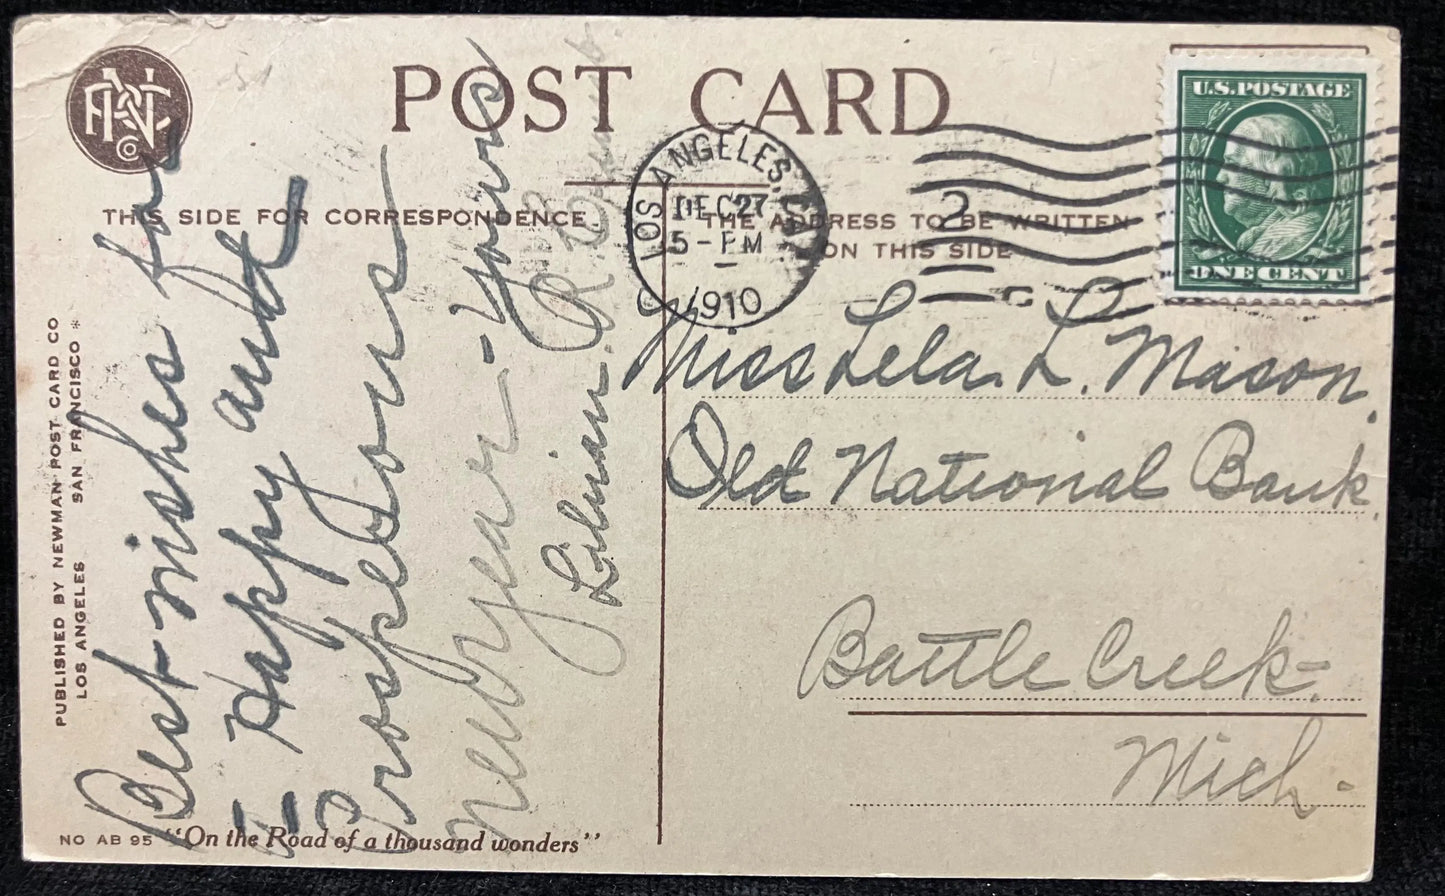 POST CARD
U.S. POSTAGE
ONE CENT
LOS ANGELES,
DEC 27
5 - PM
1910
2
THIS SIDE FOR CORRESPONDENCE
THE ADDRESS TO BE WRITTEN
ON THIS SIDE
PUBLISHED BY NEWMAN POST CARD CO
LOS ANGELES SAN FRANCISCO
Best-wishes for
a Happy and
Prosperous
New Year - Yours
Lilian.
Miss Lela. L. Mason.
Old National Bank
Battle Creek-
Mich-
NO AB 95 "On the Road of a thousand wonders"